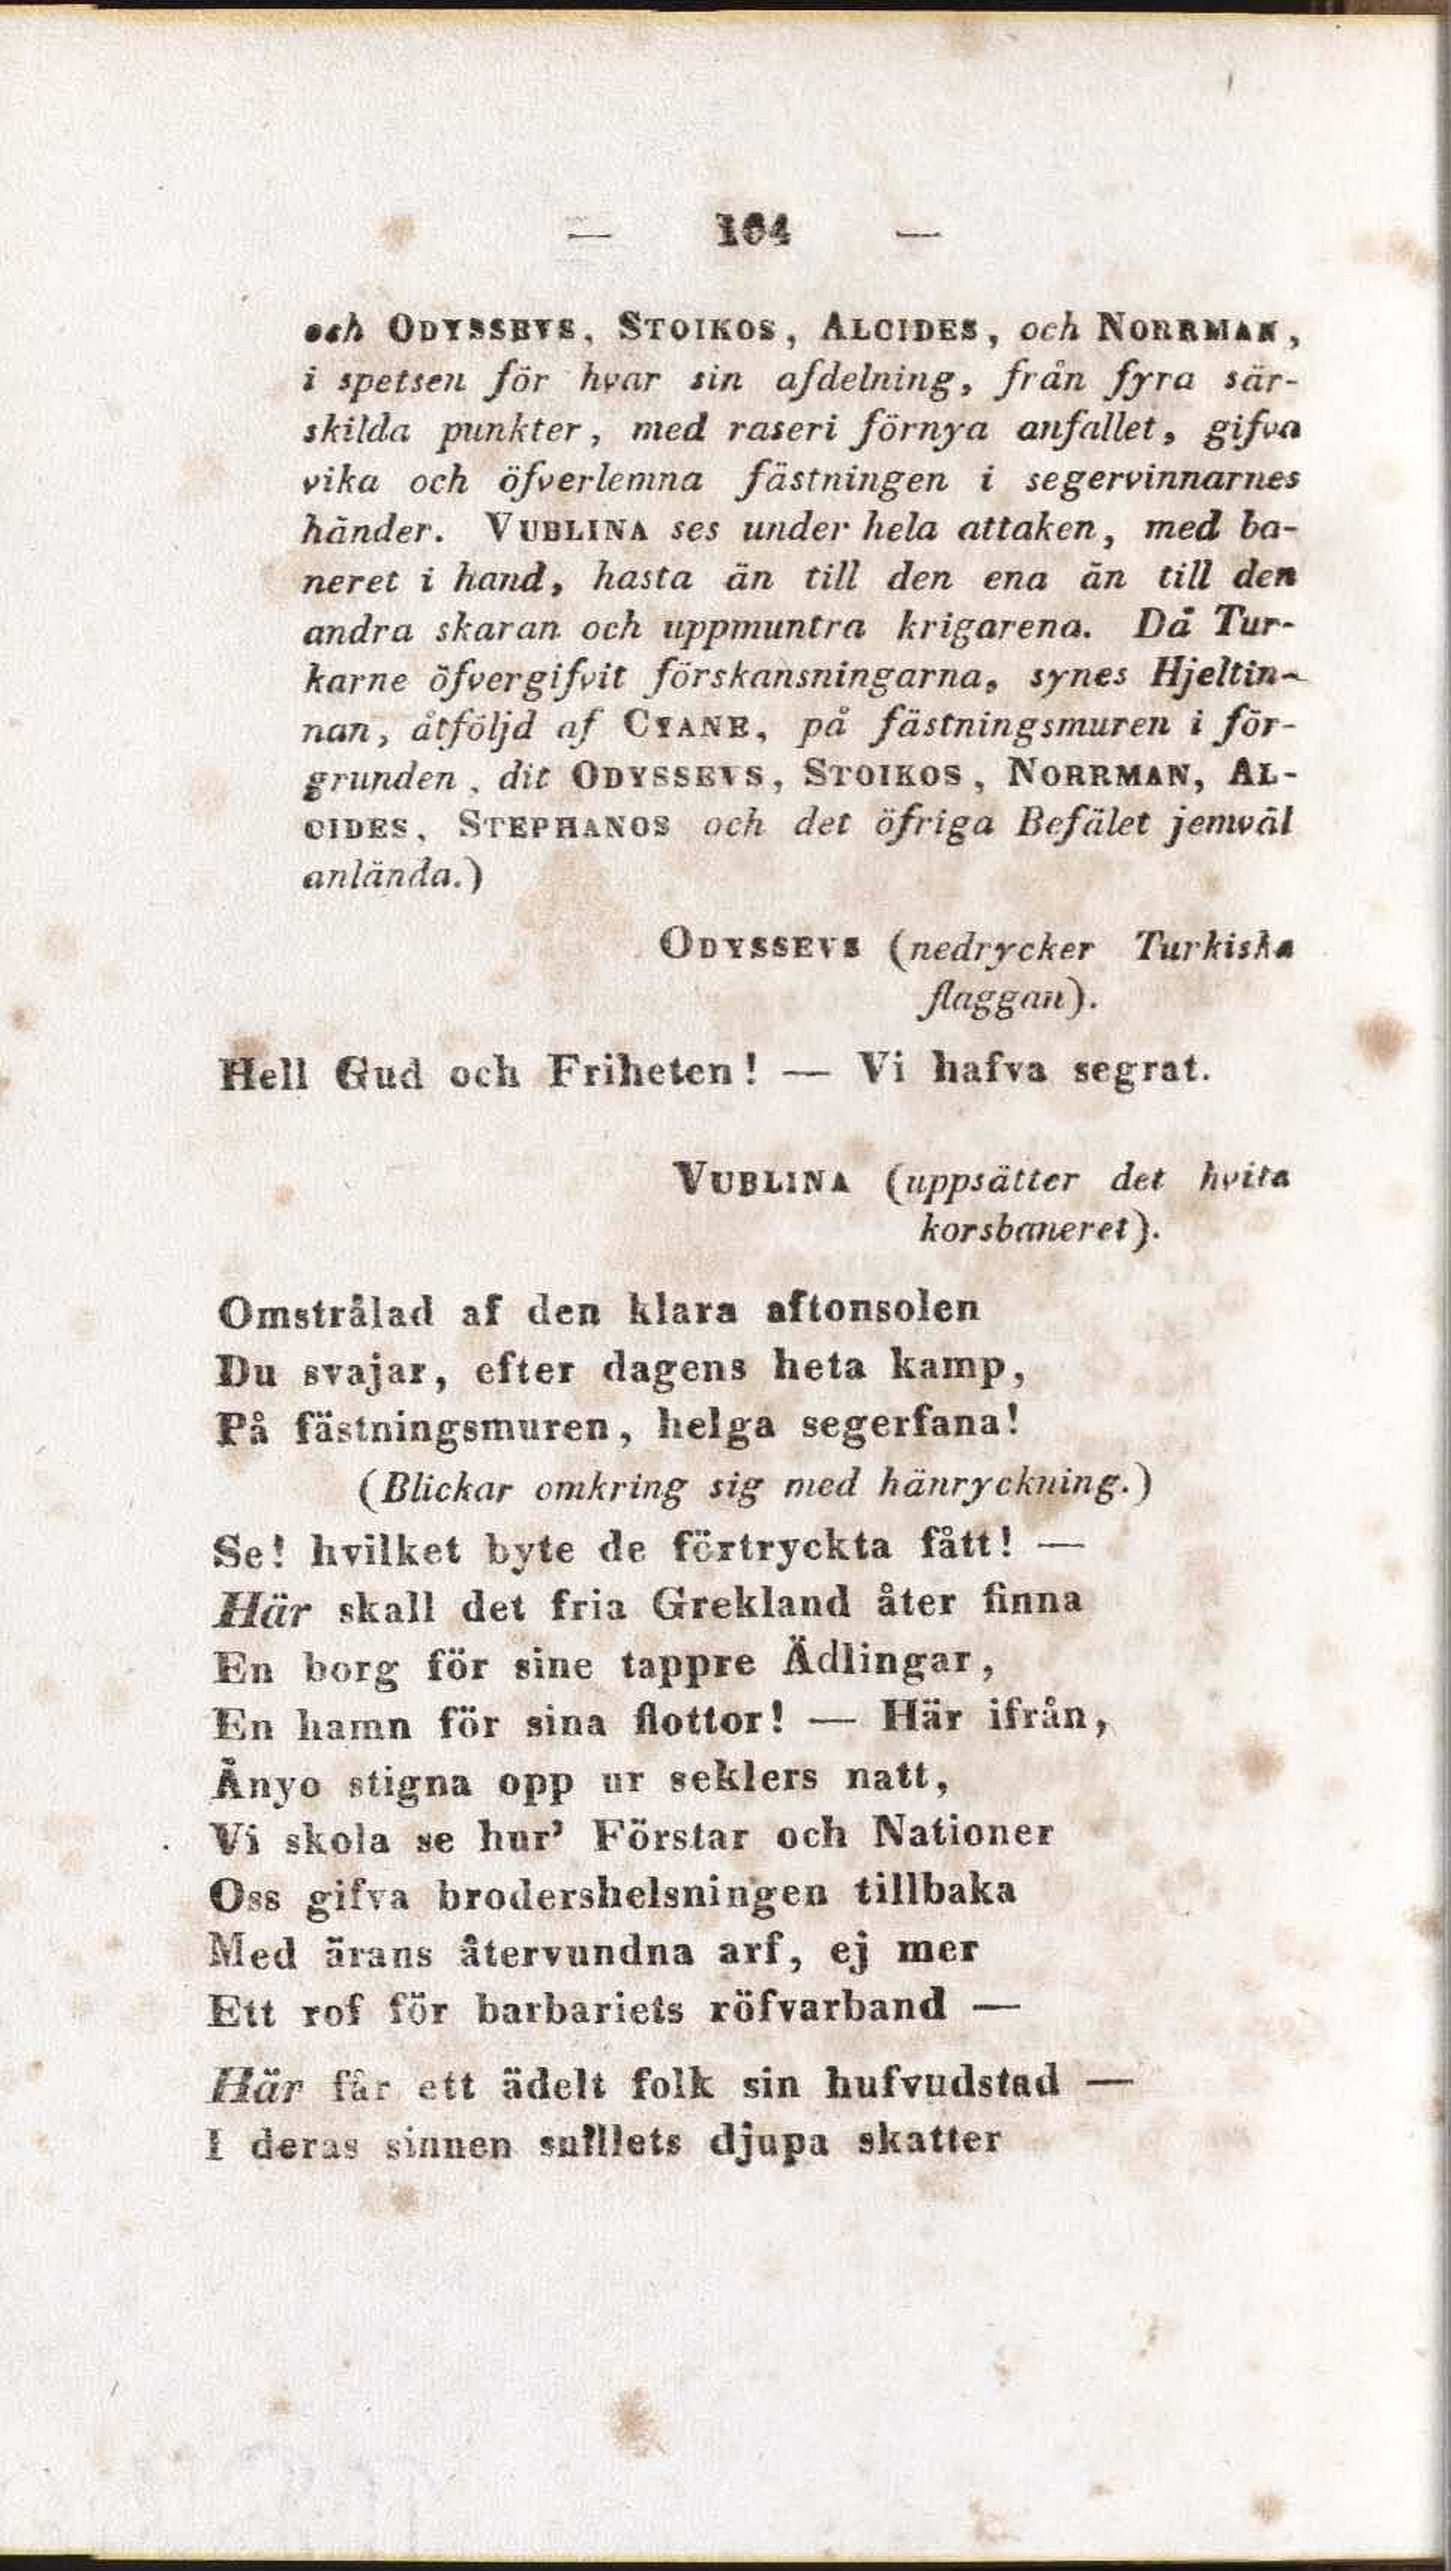 — 164 —
och ODYSSEVS, STOIKOS, ALCIDES, och NORRMAN,
i spetsen för hvar sin afdelning, från fyra sär-
skilda punkter, med raseri förnya anfallet, gifva
vika och öfverlemna fästningen i segervinnarnes
händer. VUBLINA ses under hela attaken, med ba-
neret i hand, hasta än till den ena än till den
andra skaran och uppmuntra krigarena. Då Tur-
karne öfvergifvit förskansningarna, synes Hjeltin-
nan, åtföljd af CYANE, på fästningsmuren i för-
grunden, dit ODYSSEVS, STOIKOS, NORRMAN, AL-
CIDES, STEPHANOS och det öfriga Befälet jemväl
anlända.)
ODYSSEVS (nedrycker Turkiska
flaggan).
Hell Gud och Friheten! — Vi hafva segrat.
VUBLINA (uppsätter det hvita
korsbaneret).
Omstrålad af den klara aftonsolen
Du svajar, efter dagens heta kamp,
På fästningsmuren, helga segerfana!
(Blickar omkring sig med hänryckning.)
Se! hvilket byte de förtryckta fått! —
Här skall det fria Grekland åter finna
En borg för sine tappre Ädlingar,
En hamn för sina flottor! — Här ifrån,
Ånyo stigna opp ur seklers natt,
Vi skola se hur' Förstar och Nationer
Oss gifva brodershelsningen tillbaka
Med ärans återvundna arf, ej mer
Ett rof för barbariets röfvarband —
Här får ett ädelt folk sin hufvudstad —
I deras sinnen snillets djupa skatter